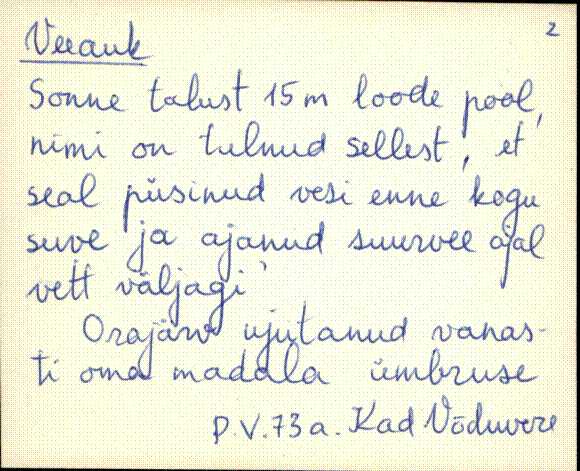 2
Veeauk
Sonne talust 15m loode pool,
nimi on tulnud sellest, et
seal püsinud vesi enne kogu
suve ja ajanud suurvee ajal
vett väljagi.
Orajärv ujutanud vanas-
ti oma madala ümbruse
P.V. 73 a. Kad Võduvere